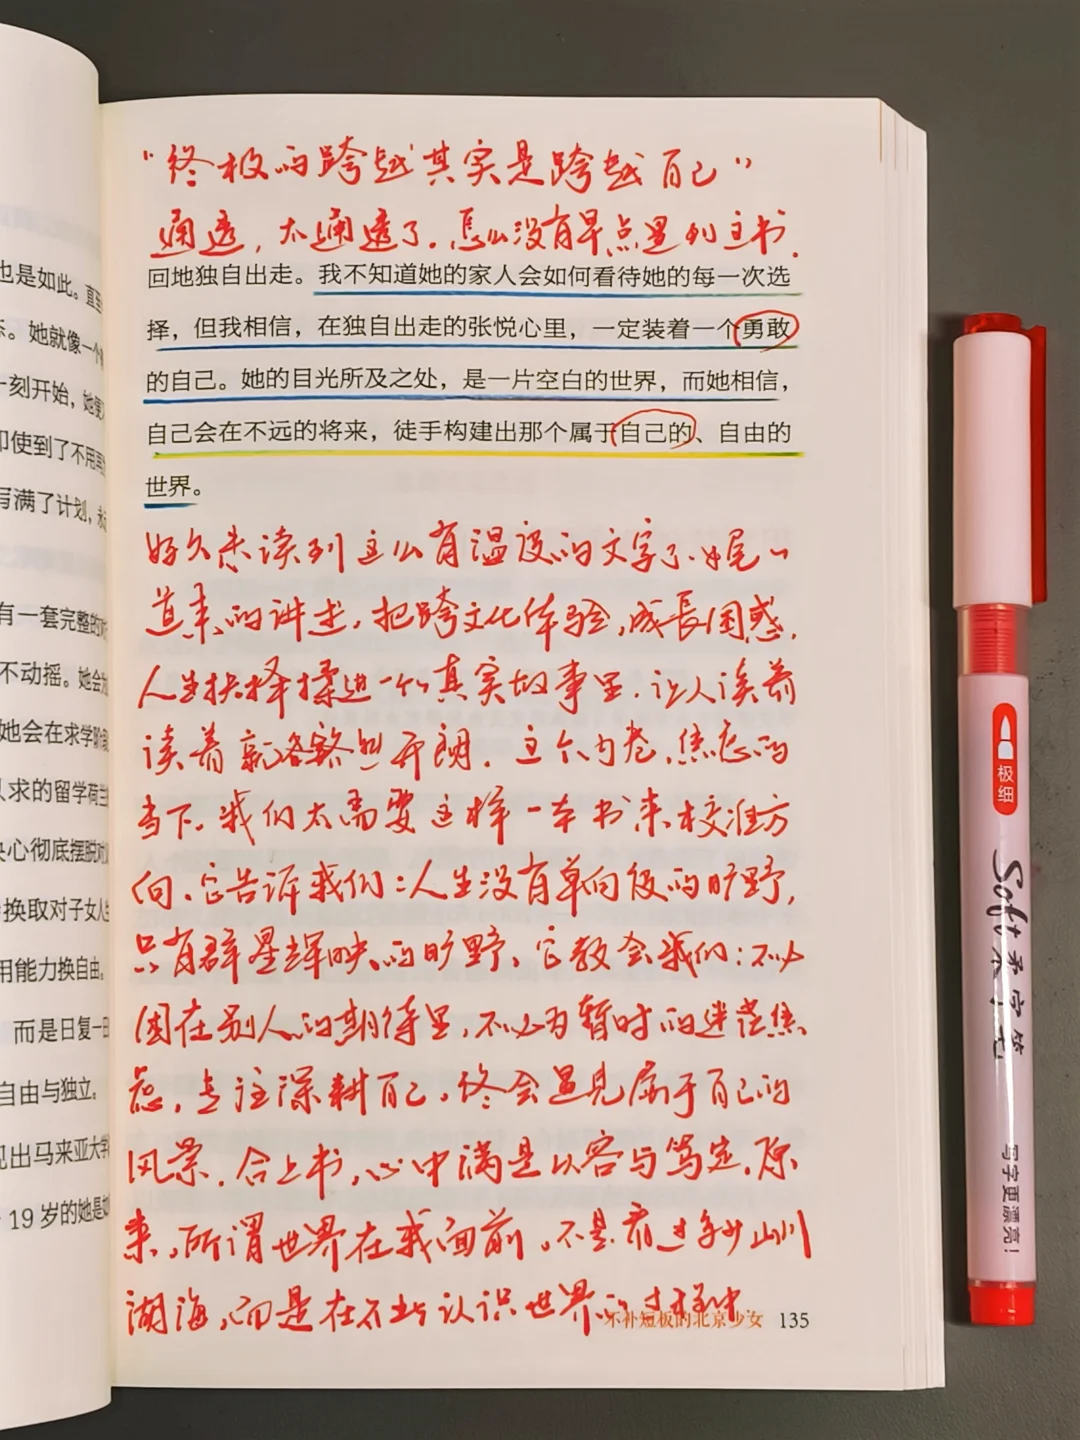 也是如此。直至
态。她就像一个
一刻开始，她便
即使到了不用
写满了计划，永
有一套完整的对
不动摇。她会为
她会在求学阶段
人求的留学荷兰
决心彻底摆脱对
换取对子女人生
用能力换自由。
而是日复一日
自由与独立。
见出马来亚大学
19岁的她是如
“终极的跨越其实是跨越自己”
通透，太通透了。怎么没有早点遇到这书.
回地独自出走。我不知道她的家人会如何看待她的每一次选
择，但我相信，在独自出走的张悦心里，一定装着一个勇敢
的自己。她的目光所及之处，是一片空白的世界，而她相信，
自己会在不远的将来，徒手构建出那个属于自己的、自由的
世界。
好久未读到这么有温度的文字了。娓娓
道来的讲述，把跨文化体验，成長困惑，
人生抉择揉进一个个真实故事里，让人读着
读着就豁然开朗. 这个内卷、焦虑的
当下，我们太需要这样一本书来校准方
向、它告诉我们：人生没有单向度的旷野，
只有群星辉映的旷野、它教会我们：不必
困在别人的期待里，不必为暂时的迷茫焦
虑，专注深耕自己，终会遇见属于自己的
风景. 合上书，心中满是从容与笃定，原
来，所谓世界在我面前，不是看过多少山川
湖海，而是在不断认识世界的过程中
不补短板的北京少女 135
极细
Soft 柔字笔
写字更漂亮！